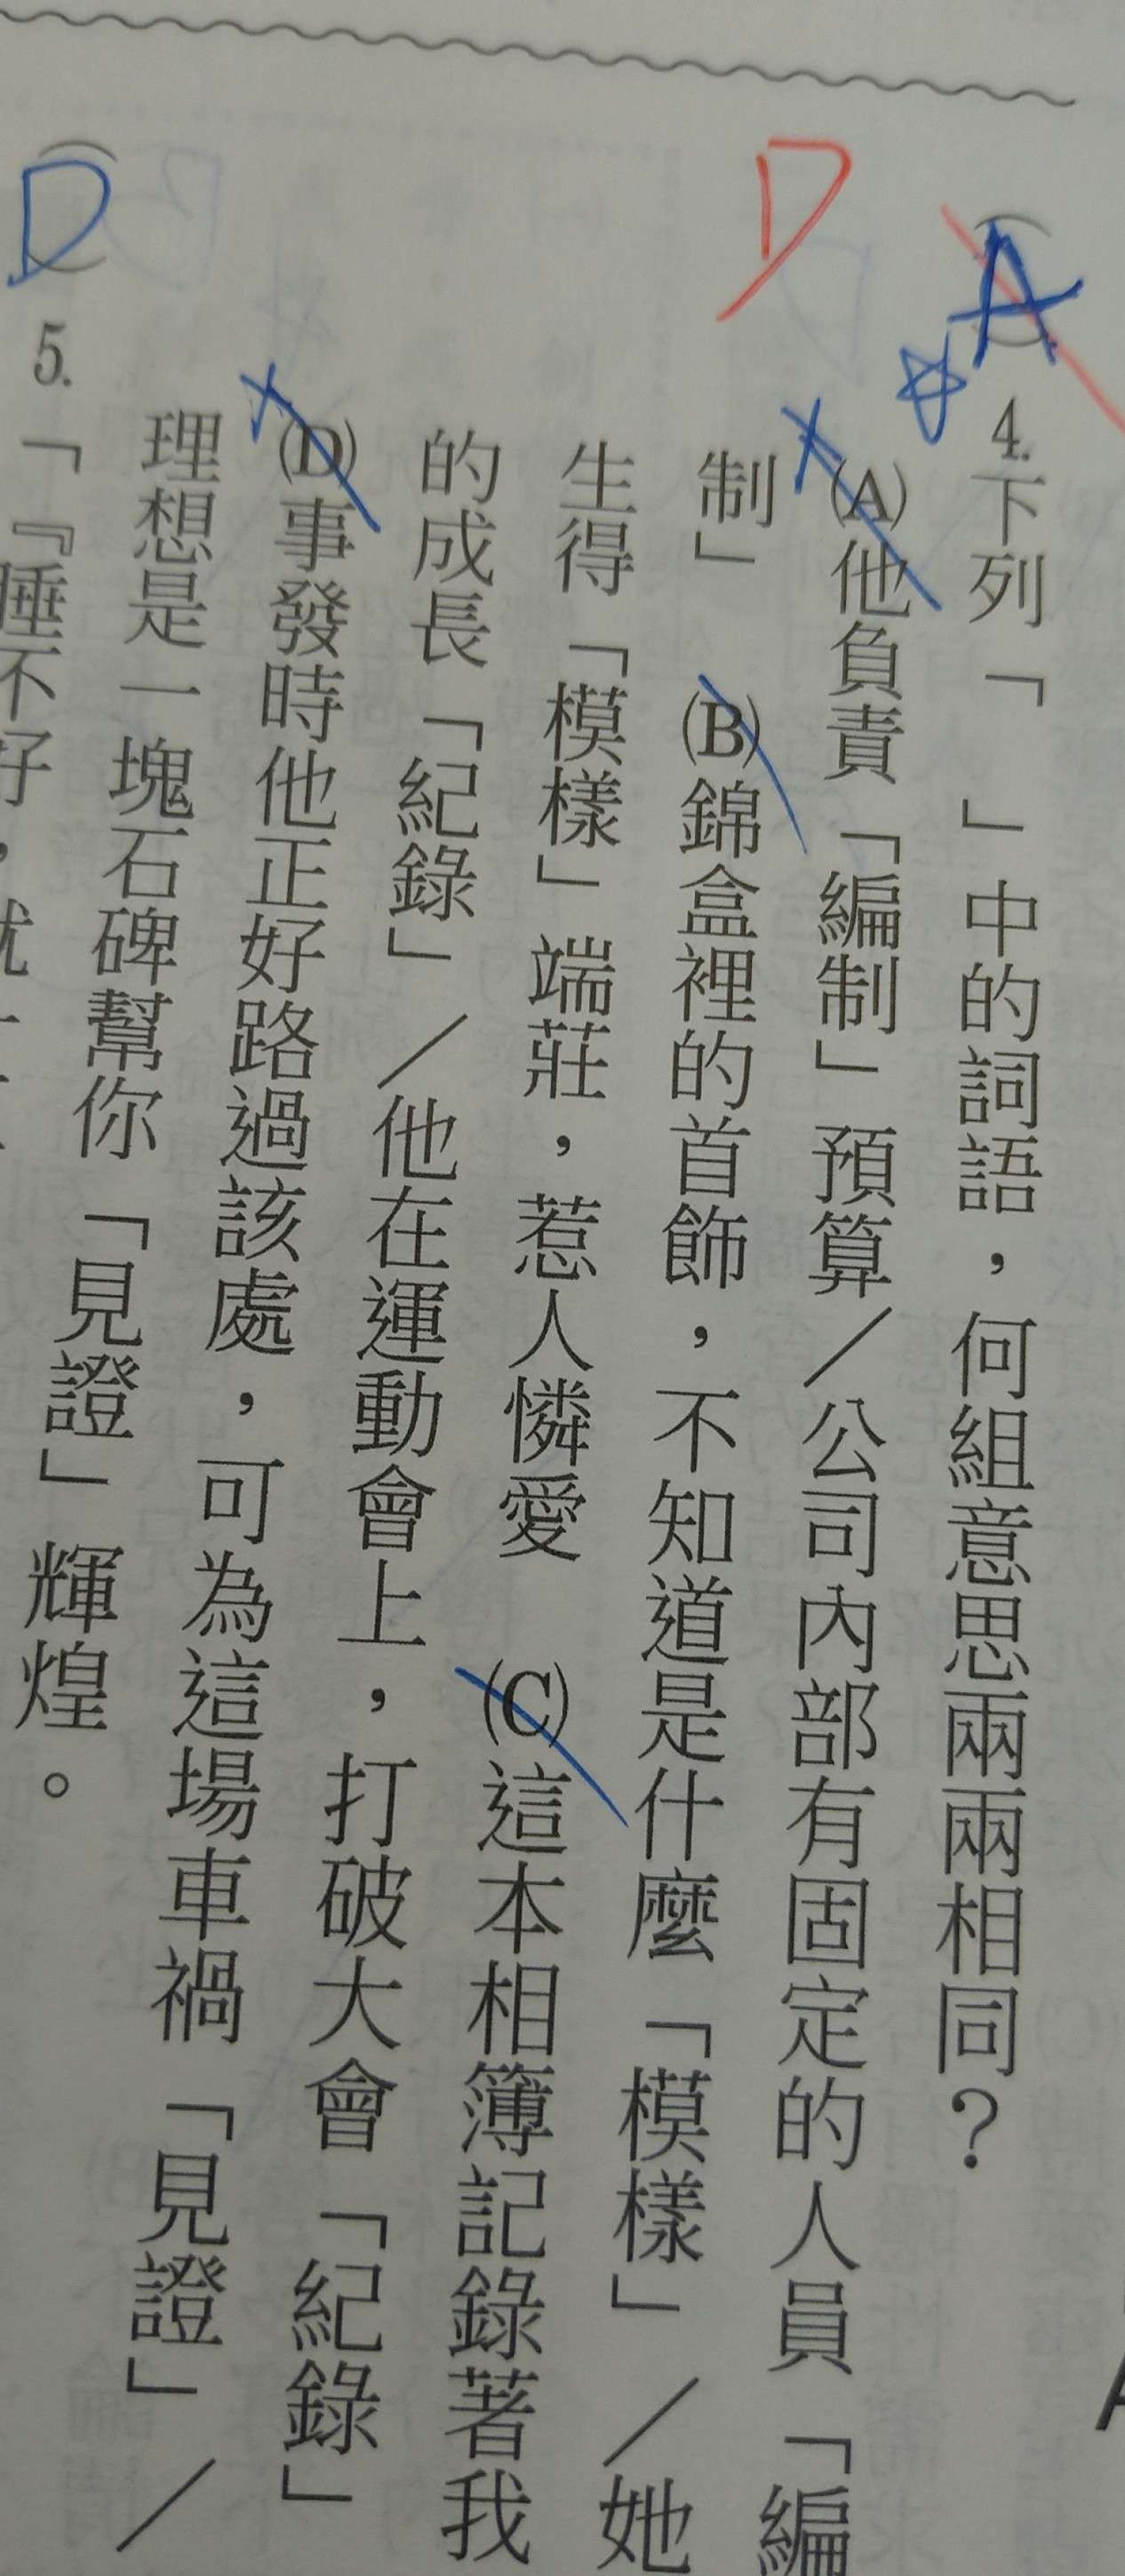 A
4.下列「　」中的詞語，何組意思兩兩相同？
(A)他負責「編制」預算／公司內部有固定的人員「編
D
制」　(B)錦盒裡的首飾，不知道是什麼「模樣」／她
生得「模樣」端莊，惹人憐愛　(C)這本相簿記錄著我
的成長「紀錄」／他在運動會上，打破大會「紀錄」
(D)事發時他正好路過該處，可為這場車禍「見證」／
理想是一塊石碑幫你「見證」輝煌。
D
5.「『睡不好，就